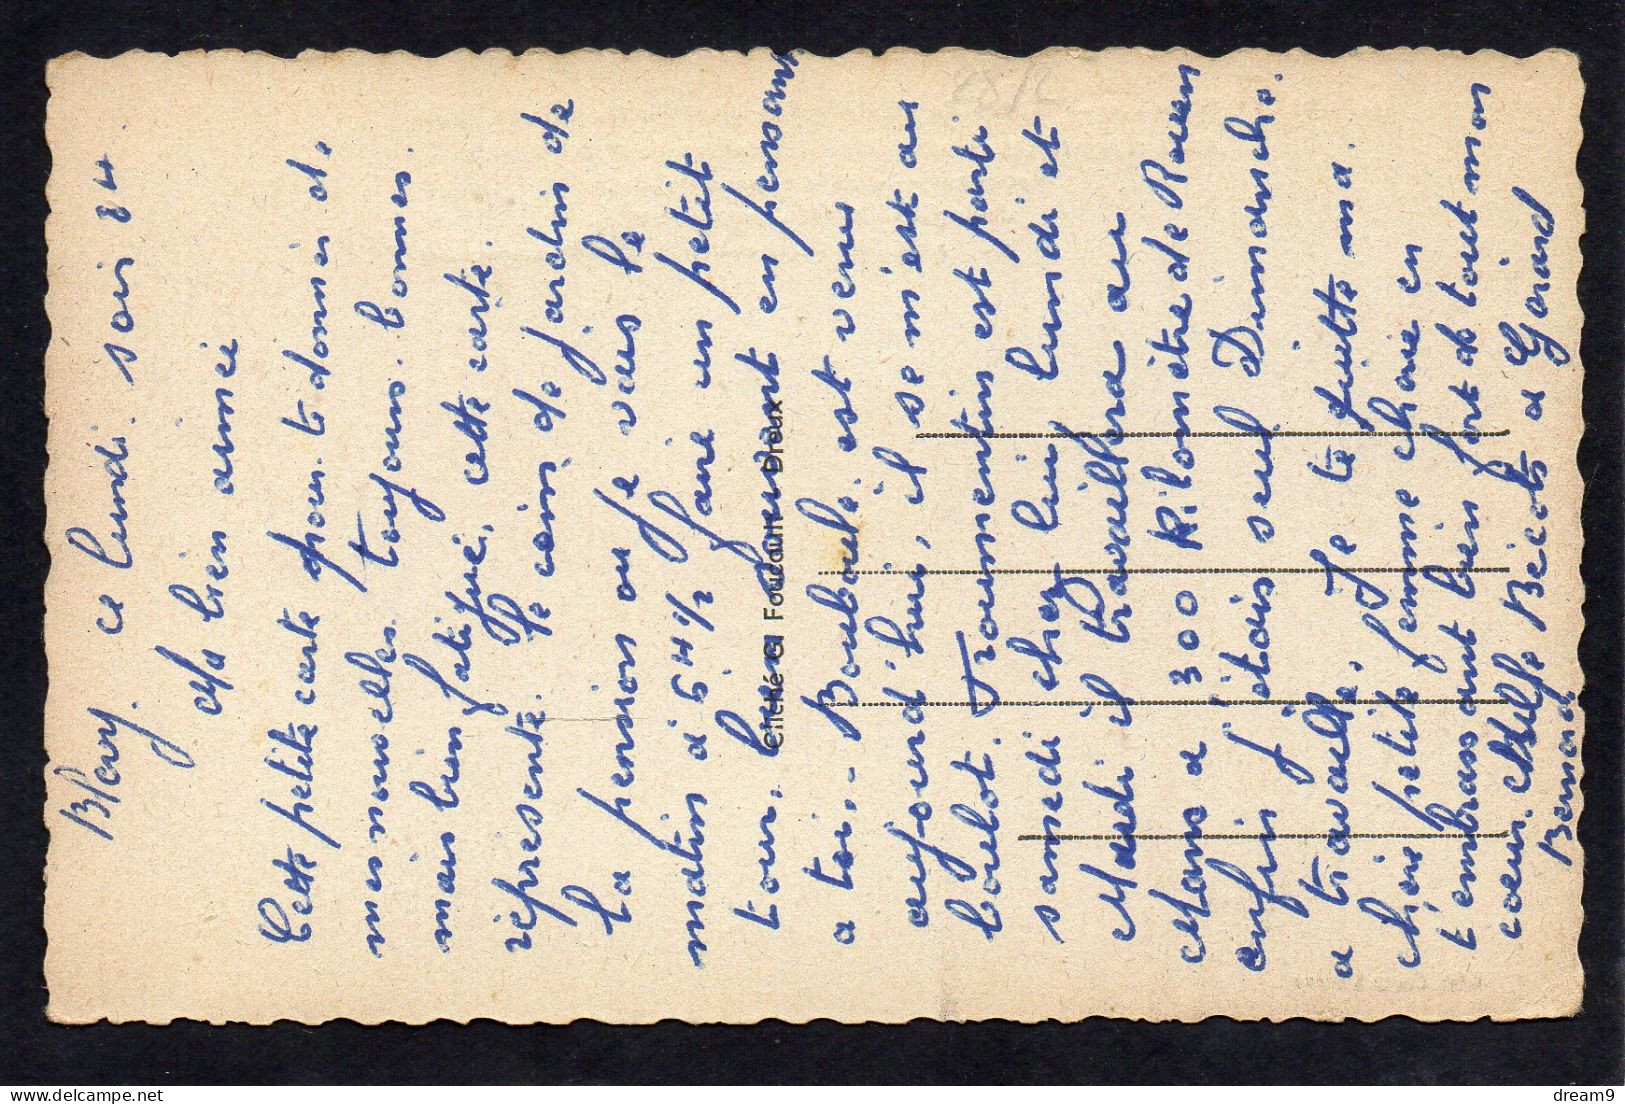 Blévy. ce lundi. soir 8 H
Ma bien aimée
Cette petite carte pour. te donner de
mes nouvelles. toujours. bonnes.
mais bien fatigué, cette carte.
représente. le coin de jardin de
la pension ou je vais le
matin à 6 H 1/2 faire un petit
tour. longuement en pensant
a toi.- Bouboule est venu
aujourd'hui, il se met au
boulot. Tourmentin est parti
samedi chez lui lundi et
Mardi il travaillera au
Mans a 300 Kilomètre de Rouen
enfin j'étais seul Dimanche.
a travaillé. Je te quitte ma.
chère petite femme chérie en
t'embrassant bien fort de tout mon
coeur. Mille Bécots a Gérard
Bernard
Cliché G. Foucault Dreux
48/2
dream9